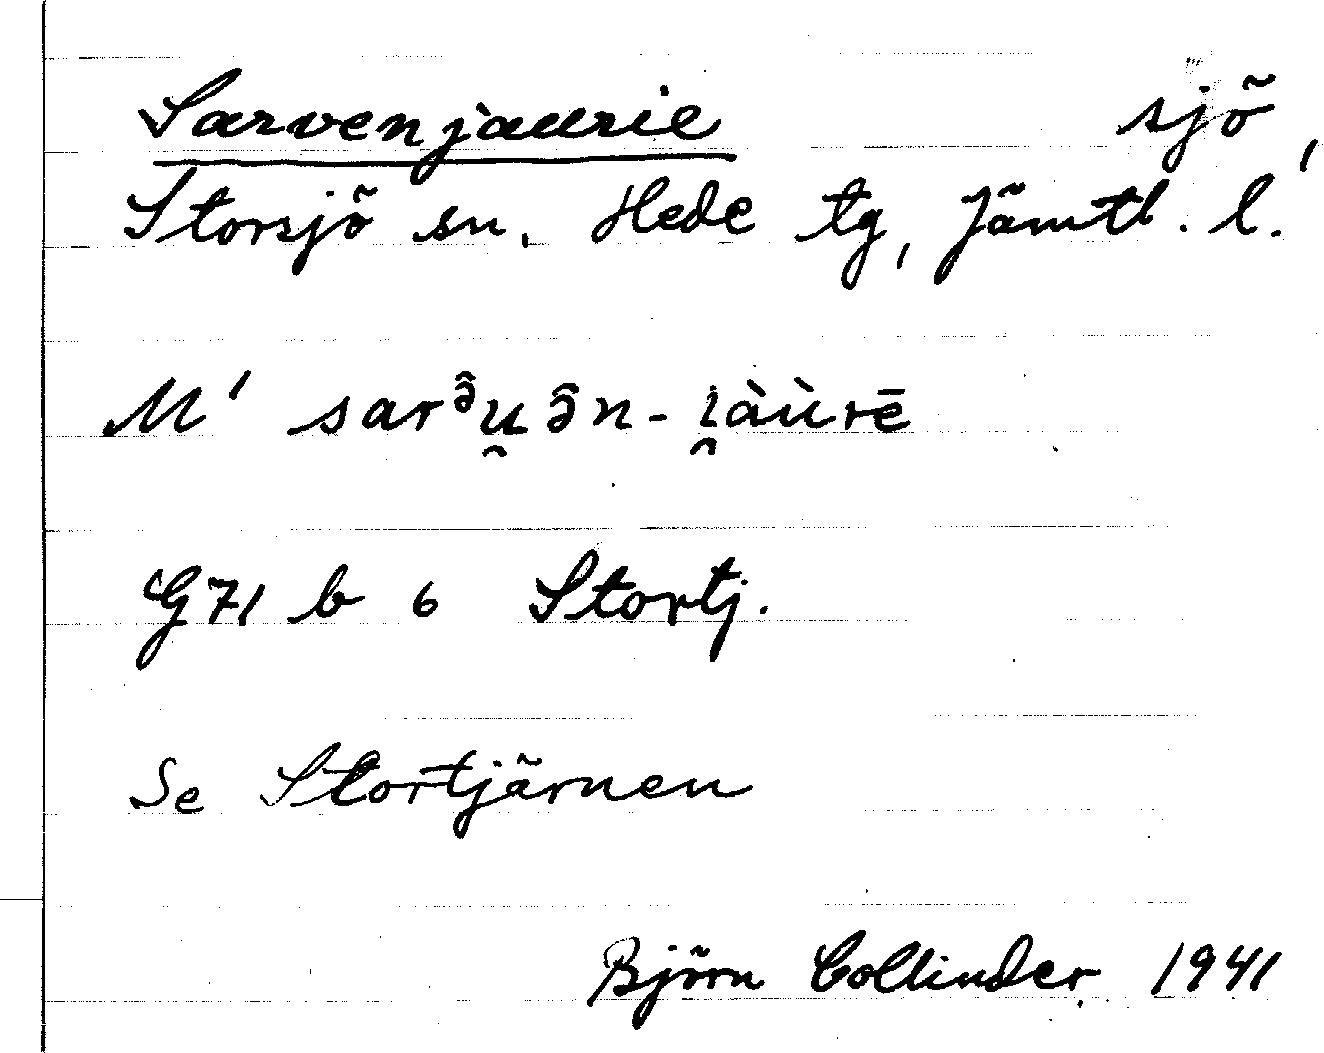 Sarvenjaurie sjö,
Storsjö sn. Hede tg, Jämtl. l.
M' sarə̂u̯ə̂n-i̯àùrē
G 71 b 6 Stortj.
Se Stortjärnen
Björn Collinder 1941